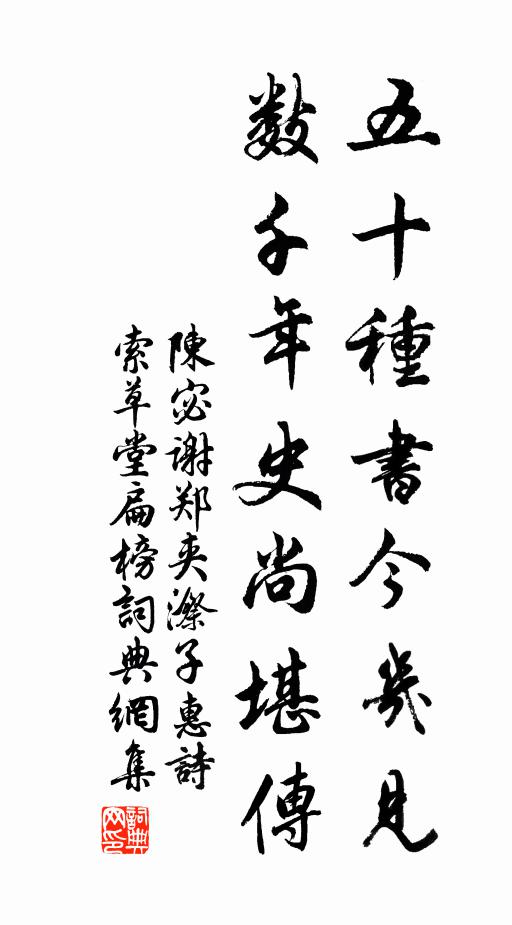 五十種書今幾見
数千年史尚堪傳
陳宓谢郑夾漈子惠詩
索草堂扁榜詞典網集
詞典网印